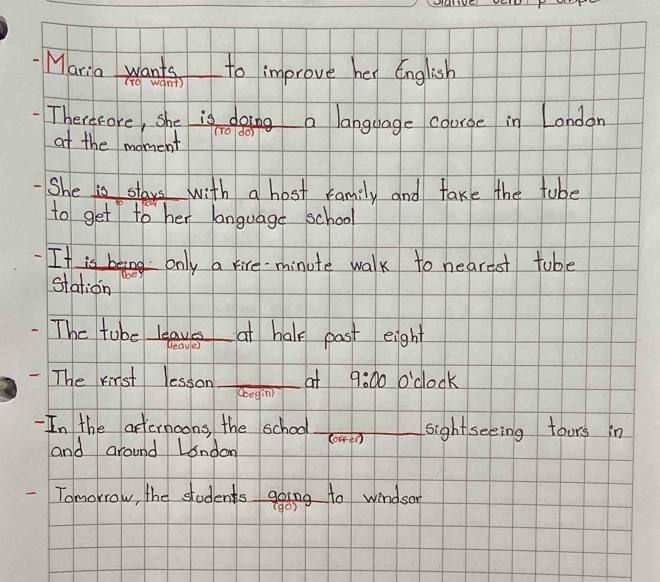 - Maria wants to improve her English
(To want)
- Therefore, she is doing a language course in London
(To do)
at the moment
- She is stays with a host family and take the tube
to stay
to get to her language school
- It is being only a five-minute walk to nearest tube
(be)
station
- The tube leaves at half past eight
(leave)
- The first lesson ______ at 9:00 o'clock
(begin)
- In the afternoons, the school ______ sightseeing tours in
(offer)
and around London
- Tomorrow, the students going to windsor
(go)